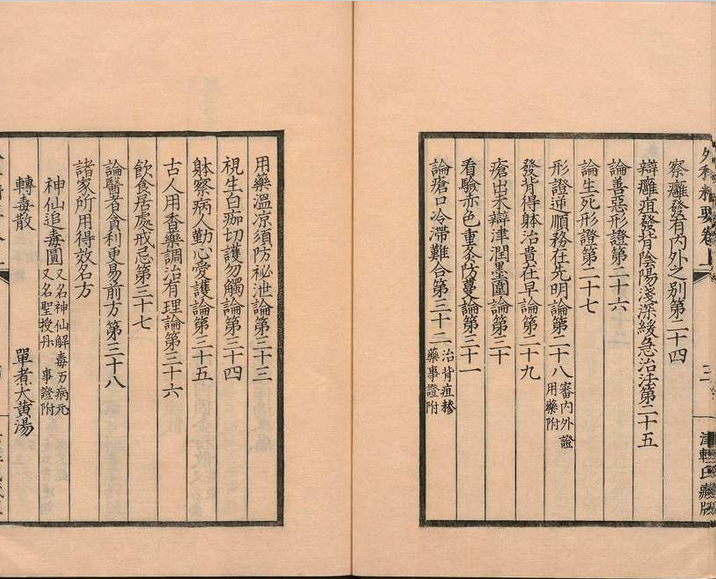 外科精要卷上
三
津輕氏藏版
察癰發有內外之別第二十四
辯癰疽發背陰陽淺深緩急治法第二十五
論善惡形證第二十六
論生死形證第二十七
形證逆順務在先明論第二十八 審內外證
用藥附
發背得躰治貴在早論第二十九
瘡出未辯津潤墨圍論第三十
看驗赤色重灸防蔓論第三十一
論瘡口冷滯難合第三十二 治背疽糝
藥事證附
用藥溫凉須防祕泄論第三十三
視生白痂切護勿觸論第三十四
躰察病人勤心愛護論第三十五
古人用香藥調治有理論第三十六
飲食居處戒忌第三十七
論醫者貪利更易前方第三十八
諸家所用得效名方
神仙追毒圓 又名神仙解毒万病元
又名聖授丹 事證附
轉毒散 單煮大黃湯